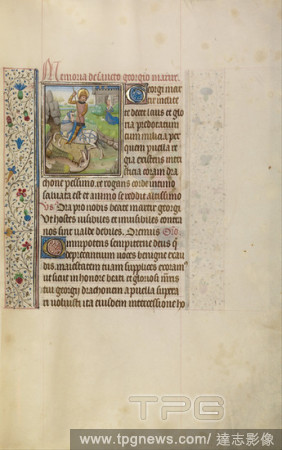 Memoria de sancto georgio martire.
Georgi mar
tir inclite
te decet laus et glo
ria predotatum
militia per
quem puella re
gia existens in tri
sticia coram dra
chone pessimo. et rogans corde intimo
salvata est et animo se reddit altissimo
Ora pro nobis beate martir georgi
Ut hostes visibiles et invisibiles contra
nos sint valde debiles. Oremus Oro
Omnipotens sempiterne deus q
deprecantium voces benigne exau
dis. maiestatem tuam supplices exoram
ut sicut in honore beati et gloriosi
georgii drachonem a puella supera
ri voluisti ita eiusdem intercessione ho
TPG
www.tpgnews.com/達志影像